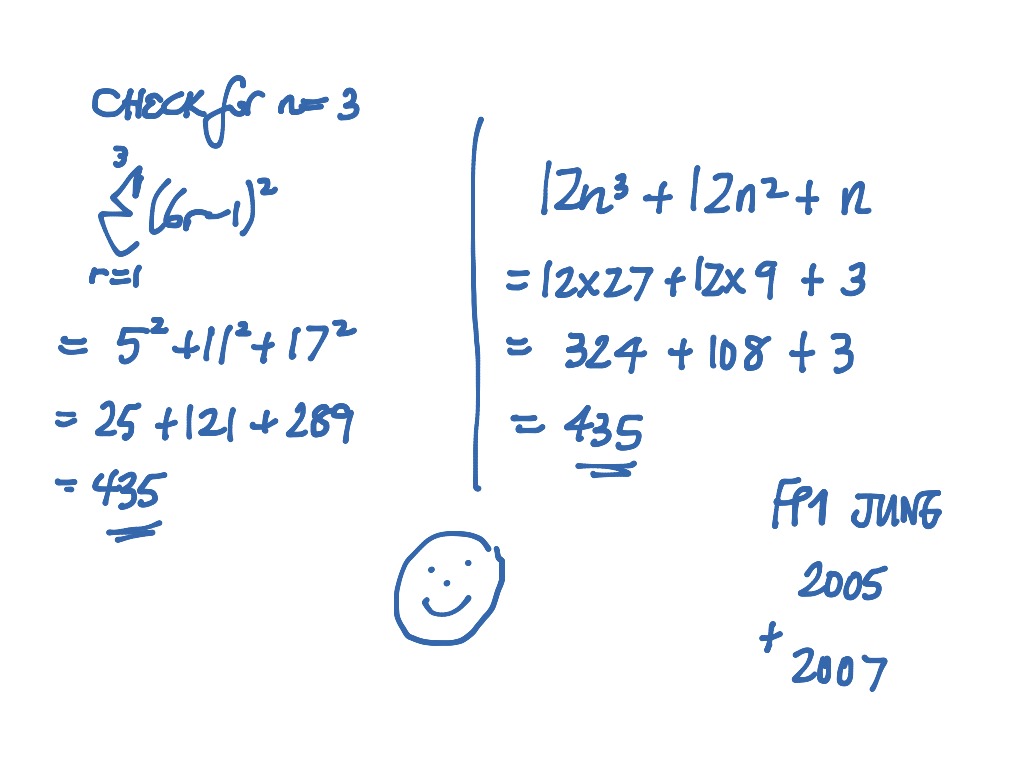 CHECK for n = 3
3
Σ (6r-1)²
r=1
= 5² + 11² + 17²
= 25 + 121 + 289
= 435
12n³ + 12n² + n
= 12×27 + 12×9 + 3
= 324 + 108 + 3
= 435
FP1 JUNE
2005
+ 2007